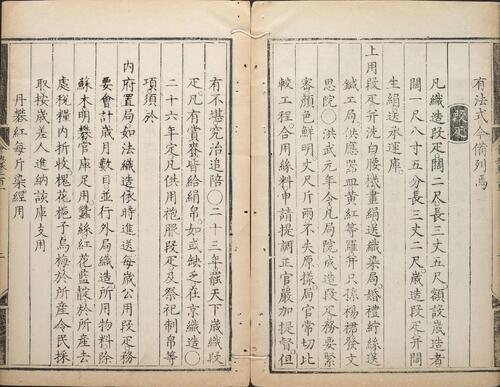 有法式今備列焉
段疋
凡織造段疋闊二尺長三丈五尺額設歲造者
闊一尺八寸五分長三丈二尺歲造段疋并闊
生絹送承運庫
上用段疋并洗白腰機畫絹送織染局婚禮紵絲送
鍼工局供應器皿黃紅等羅并只孫褐裙發文
思院○洪武元年令凡局院成造段疋務要緊
審顏色鮮明丈尺斤兩不失原樣局官常切比
較工程合用絲料申請提調正官嚴加提督但
有不堪究治追陪○二十三年罷天下歲織段
疋凡有賞賚皆給絹帛如或缺乏在京織造○
二十六年定凡供用袍服段疋及祭祀制帛等
項須於
內府置局如法織造依時進送每歲公用段疋務
要會計歲月數目並行外局織造所用物料除
蘇木明礬官庫足用蠶絲紅花藍靛於所產去
處稅糧內折收槐花梔子烏梅於所產令民採
取按歲差人進納該庫支用
丹礬紅每斤染經用